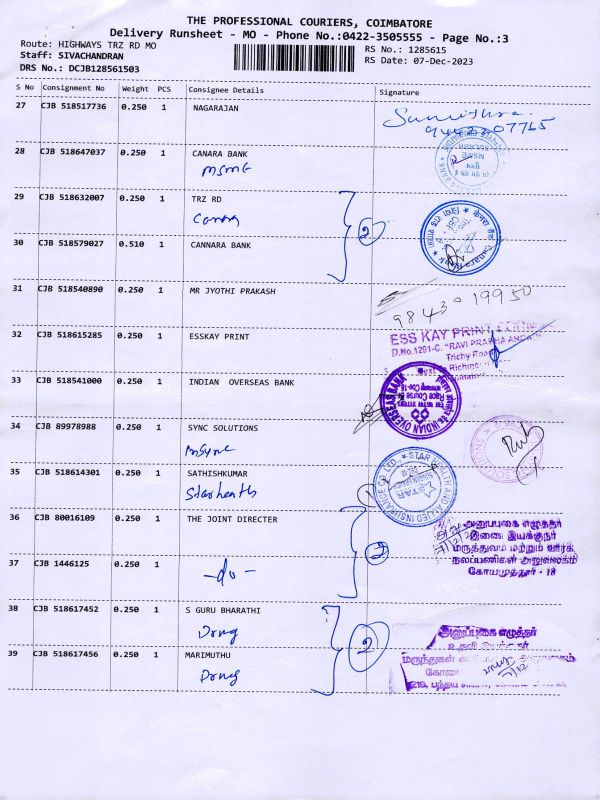 THE PROFESSIONAL COURIERS, COIMBATORE
Delivery Runsheet - MO - Phone No.:0422-3505555 - Page No.:3
Route: HIGHWAYS TRZ RD MO
RS No.: 1285615
Staff: SIVACHANDRAN
RS Date: 07-Dec-2023
DRS No.: DCJB128561503
S No Consignment No Weight PCS Consignee Details Signature
27 CJB 518517736 0.250 1 NAGARAJAN
28 CJB 518647037 0.250 1 CANARA BANK
MSME
29 CJB 518632007 0.250 1 TRZ RD
Canara
2
30 CJB 518579027 0.510 1 CANNARA BANK
Canara Bank
31 CJB 518540890 0.250 1 MR JYOTHI PRAKASH
98430 19950
32 CJB 518615285 0.250 1 ESSKAY PRINT
ESS KAY PRINT
D.No.1291-C, "RAVI PRABHA
Trichy Road
Richmond
33 CJB 518541000 0.250 1 INDIAN OVERSEAS BANK
INDIAN OVERSEAS BANK
Race Course
34 CJB 89978988 0.250 1 SYNC SOLUTIONS
35 CJB 518614301 0.250 1 SATHISHKUMAR
STAR HEALTH AND ALLIED INSURANCE CO LTD.
STAR
36 CJB 80016109 0.250 1 THE JOINT DIRECTER
அனுப்புகை எழுத்தர்
இணை இயக்குநர்
மருத்துவம் மற்றும் ஊரக
நலப்பணிகள் அலுவலகம்
கோயமுத்தூர் - 18
2
37 CJB 1446125 0.250 1
-do-
38 CJB 518617452 0.250 1 S GURU BHARATHI
Drug
அனுப்புகை எழுத்தர்
2
39 CJB 518617456 0.250 1 MARIMUTHU
Drug
மருந்துகள்
219,